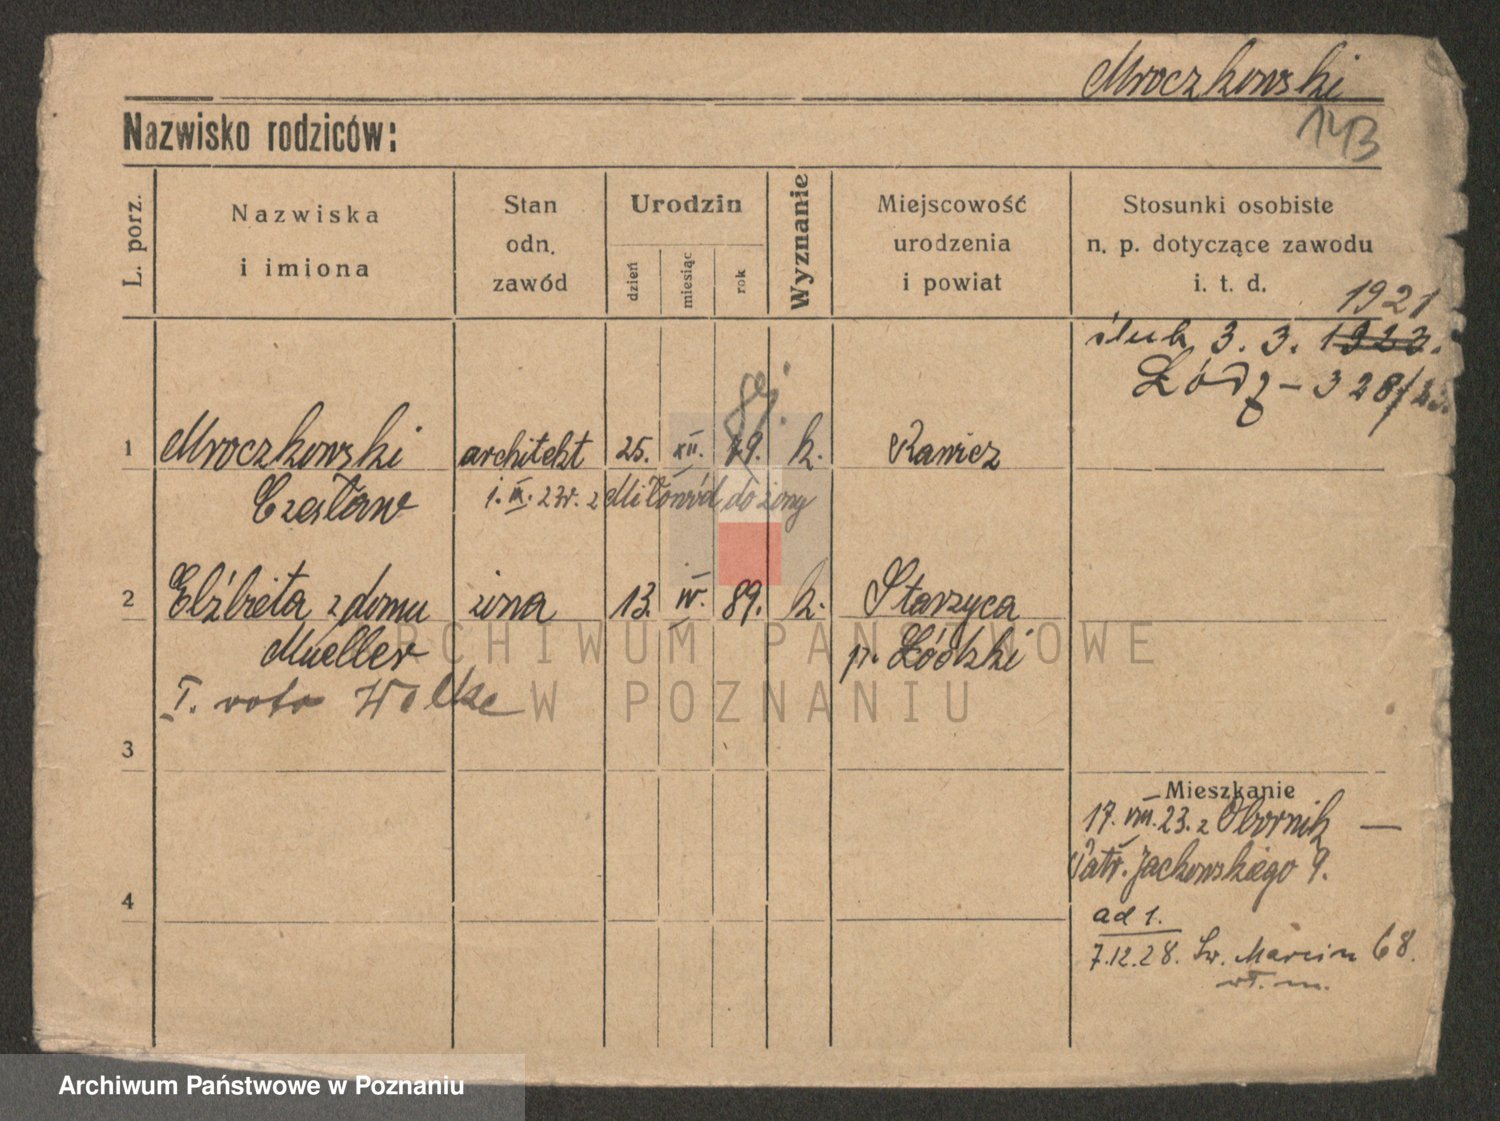 Mroczkowski
143
Nazwisko rodziców:
L. porz.
Nazwiska
i imiona
Stan
odn.
zawód
Urodzin
dzień
miesiąc
rok
Wyznanie
Miejscowość
urodzenia
i powiat
Stosunki osobiste
n. p. dotyczące zawodu
i. t. d.
1921
ślub 3. 3. 1923.
Łódź - 328/23.
89.
1 Mroczkowski architekt 25. XII. 79. k. Rawicz
Czesław
1. III. 23r. z Miłoward do żony
2 Elżbieta z domu żona 13. IV. 89. k. Starzyca
Mueller p. Łódzki
I. voto Wolke
3
Mieszkanie
17. VIII. 23. z Obornik —
Patr. Jackowskiego 9.
4
ad 1.
7.12.28. Św. Marcin 68.
wł. m.
ARCHIWUM PAŃSTWOWE
W POZNANIU
Archiwum Państwowe w Poznaniu